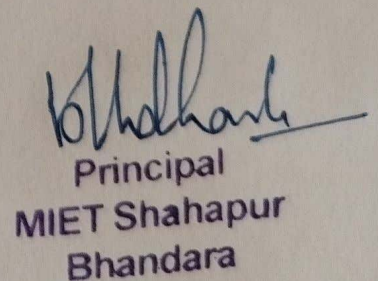 Principal
MIET Shahapur
Bhandara